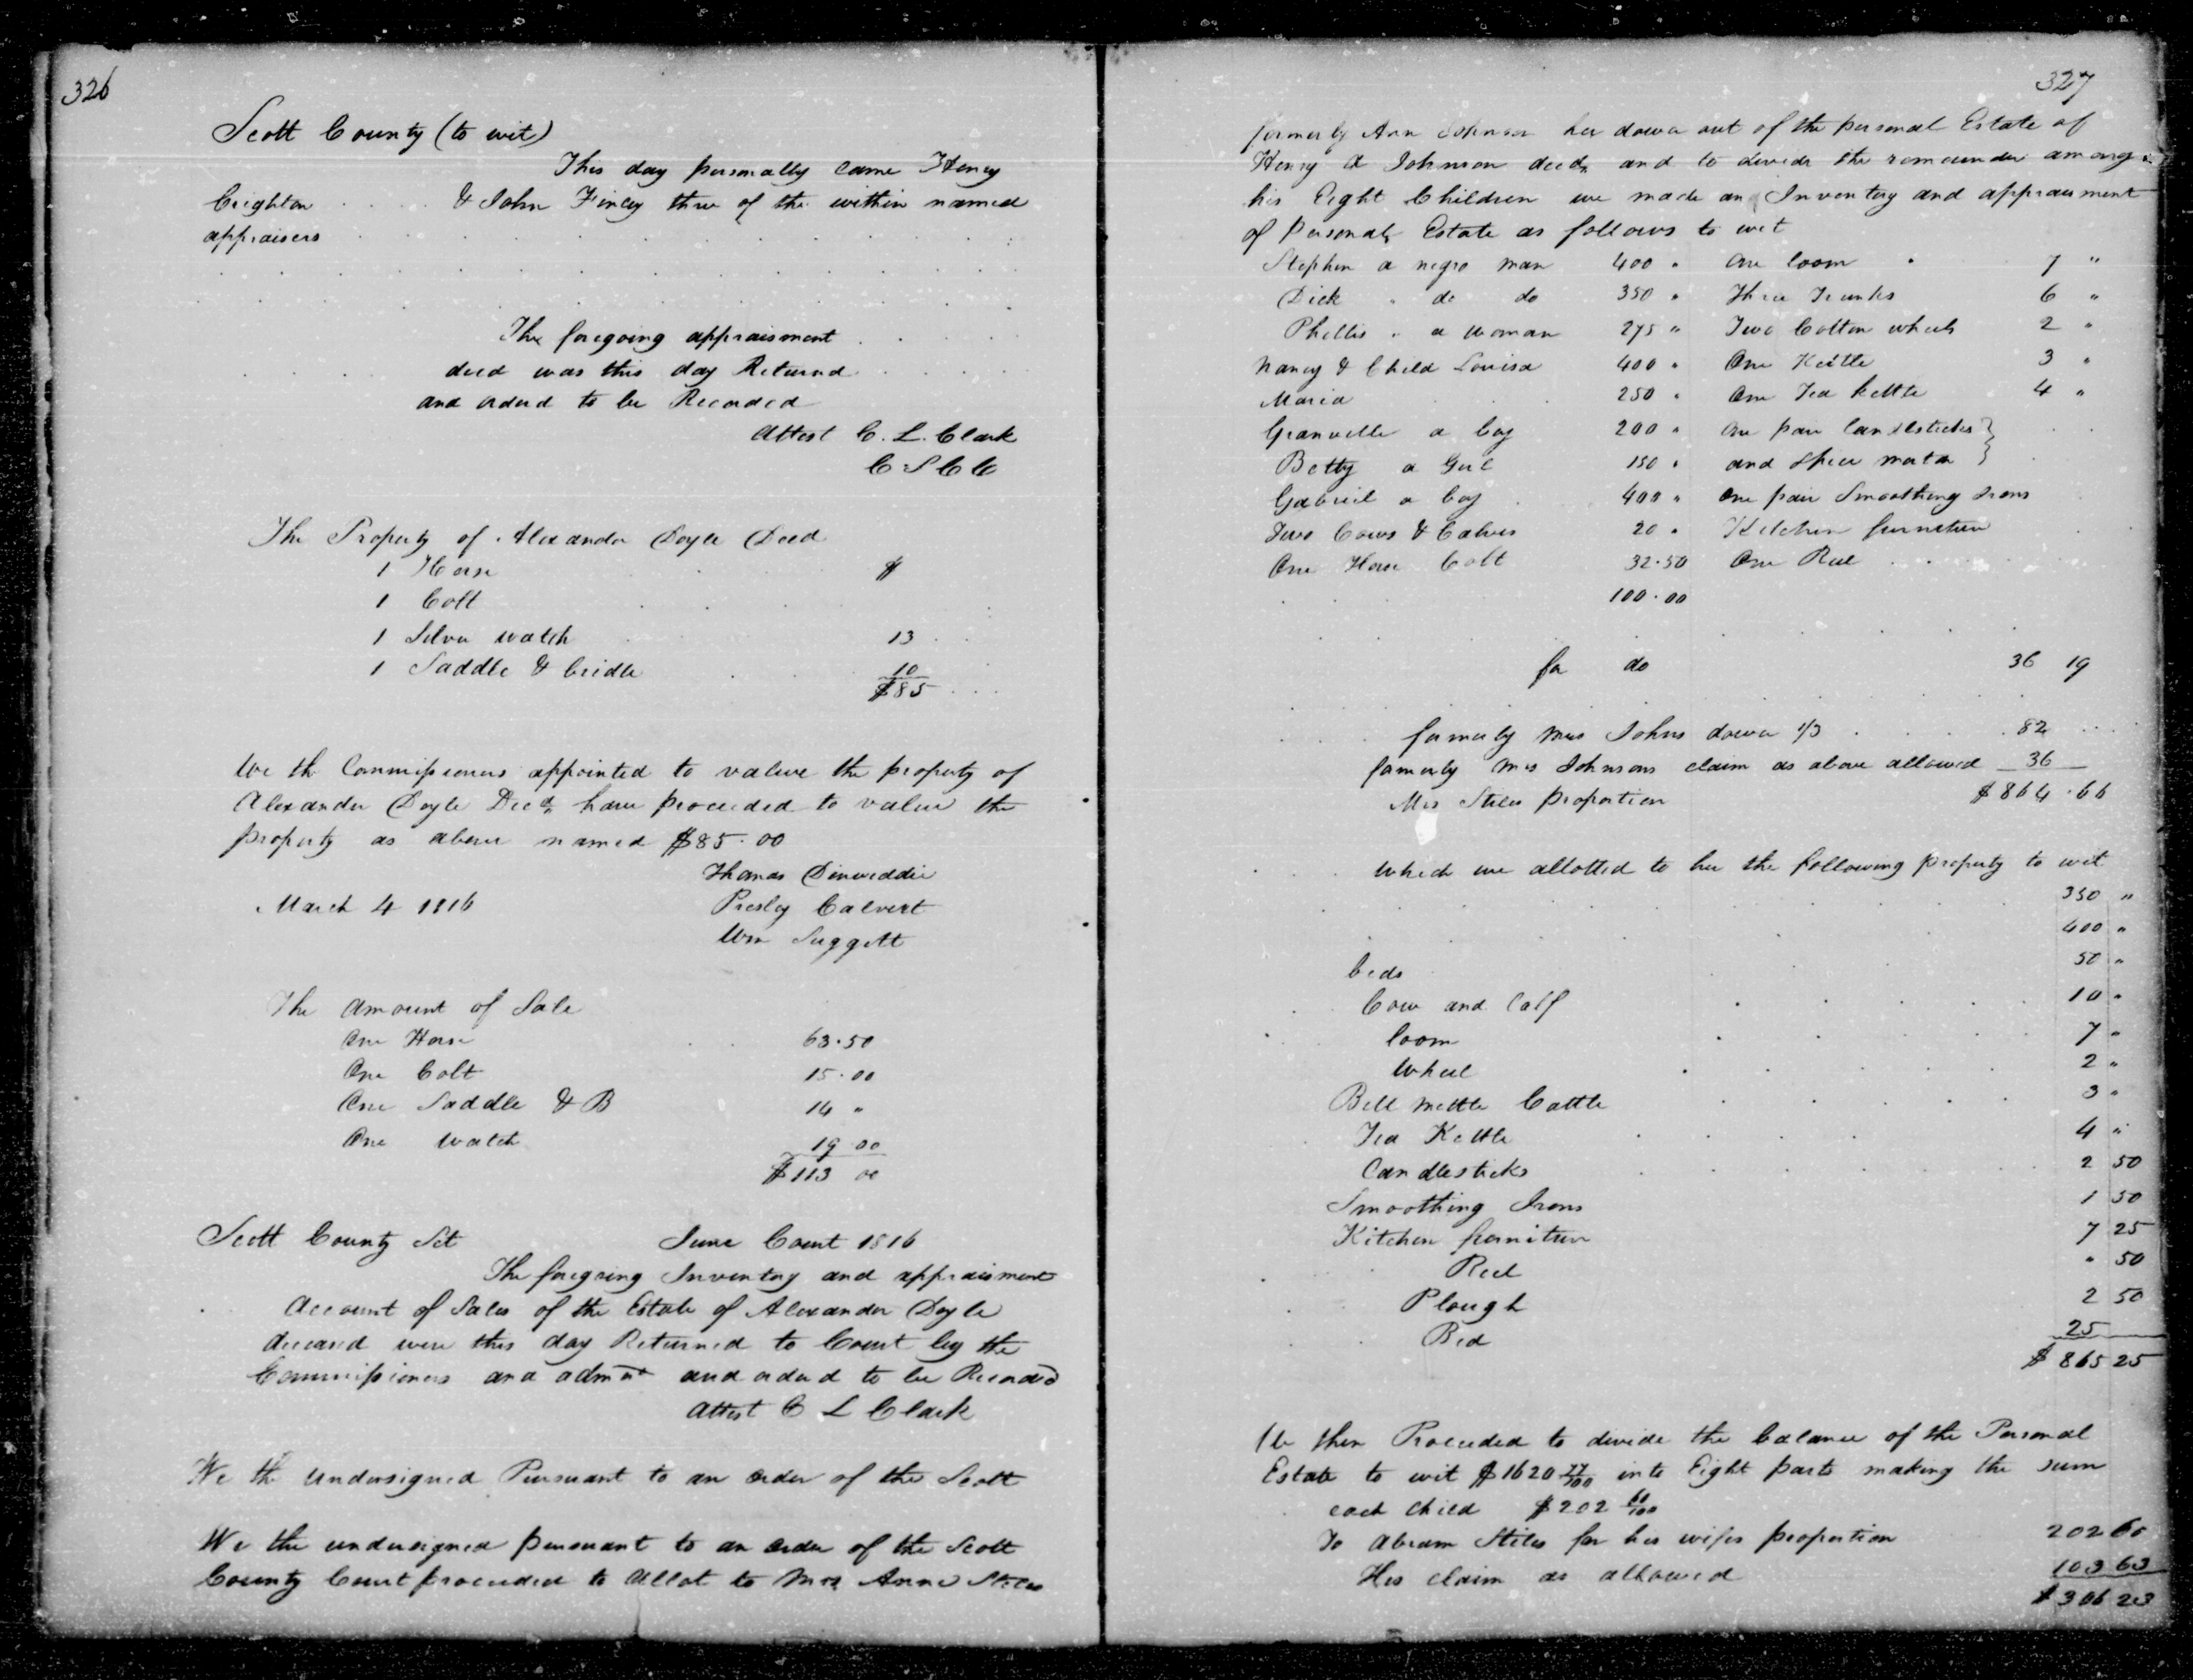 326
Scott County (to wit)
This day personally came Henry
Crighton . . . . & John Finley three of the within named
appraisers
The foregoing appraisment
decd was this day Returnd
and orderd to be Recorded
Attest C. L. Clark
C S C C
The Property of Alexander Doyle Decd
1 Horse $
1 Colt
1 Silver watch 13
1 Saddle & bridle 10
$85
We the Commissioners appointed to value the property of
Alexander Doyle Decd have proceeded to value the
property as above named $85.00
Thomas Dinwiddie
March 4 1816 Presley Calvert
Wm Suggett
The amount of Sale
One Horse 63.50
One Colt 15.00
One Saddle & B 14 "
One Watch 19 00
$113 00
Scott County Sct June Court 1816
The foregoing Inventory and appraisment
Account of Sales of the Estate of Alexander Doyle
deceasd were this day Returned to Court by the
Commissioners and admor and orderd to be Recorded
Attest C L Clark
We the undersigned Pursuant to an order of the Scott
We the undersigned pursuant to an order of the Scott
County Court proceeded to allot to Mrs Anne Stiles
327
formerly Ann Johnson her dower out of the personal Estate of
Henry A Johnson decd, and to devide the remainder among
his Eight Children we made an Inventory and appraisment
of Personal Estate as follows to wit
Stephen a negro man 400 " One loom 7 "
Dick " do do 350 " Three Trunks 6 "
Phillis " a woman 275 " Two Cotton wheels 2 "
Nancy & Child Louisa 400 " One Kettle 3 "
Maria 250 " One Tea kettle 4 "
Granville a boy 200 " One pair Candlesticks }
Betty a Girl 150 " and spice morter }
Gabriel a boy 400 " One pair Smoothing Irons
Two Cows & Calves 20 " Kitchen furniture
One Horse Colt 32.50 One Reel
100.00
for do 36 19
formerly Mrs Johns dower 1/3 82
formerly Mrs Johnsons claim as above allowed 36
Mrs Stiles proportion $864.66
which we allotted to her the following property to wit
350 "
400 "
beds 50 "
Cow and Calf 10 "
loom 7 "
Wheel 2 "
Bell mettle Cattle 3 "
Tea Kettle 4 "
Candlesticks 2 50
Smoothing Irons 1 50
Kitchen furniture 7 25
Reel " 50
Plough 2 50
Bed 25
$865 25
We then Proceeded to devide the balance of the Personal
Estate to wit $1620 77/100 into Eight parts making the sum
each child $202 60/100
To Abram Stiles for his wifes proportion 202 60
His claim as allowed 103 63
$306 23